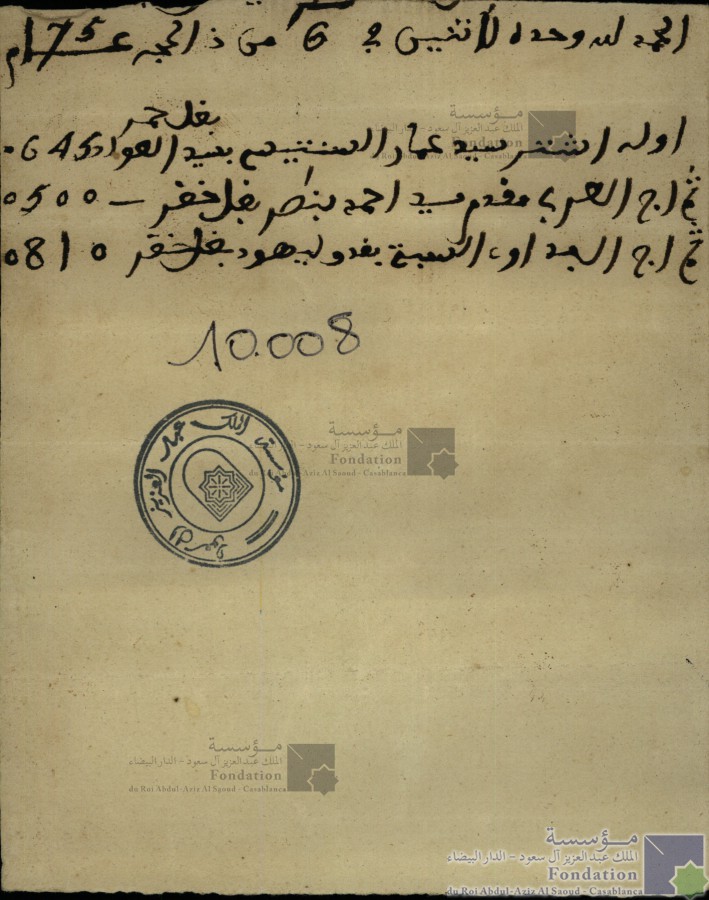 الحمد لله وحده لأثنين في 6 من ذ الحجه عـــام 75
بغل حمر
اوله اشتر سيد عمار السنتيسي بسيد العواد 0645
ثم اج العربي مقدم سيد احمد بغل خضر — 0500
ثم اج البداوي السبة يعدو ليهود بغل خضر 0810
10.008
مؤسسة الملك عبد العزيز
مؤسسة
الملك عبدالعزيز آل سعود - الدار البيضاء
مؤسسة
الملك عبدالعزيز آل سعود - الدار البيضاء
Fondation
du Roi Abdul-Aziz Al Saoud - Casablanca
مؤسسة
الملك عبدالعزيز آل سعود - الدار البيضاء
Fondation
du Roi Abdul-Aziz Al Saoud - Casablanca
مؤسسة
الملك عبدالعزيز آل سعود - الدار البيضاء
Fondation
du Roi Abdul-Aziz Al Saoud - Casablanca